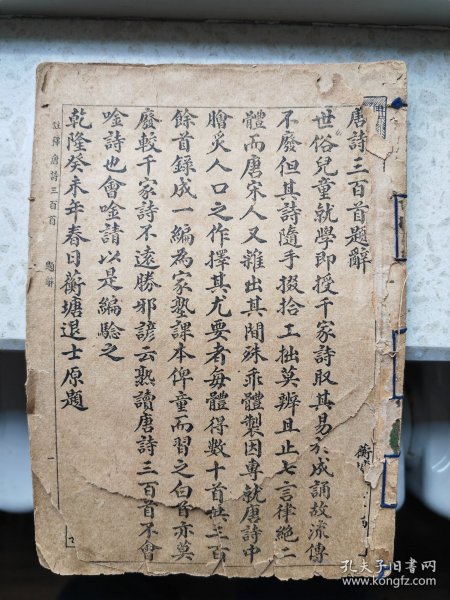 唐詩三百首題辭
世俗兒童就學即授千家詩取其易於成誦故流傳
不廢但其詩隨手掇拾工拙莫辨且止七言律絕二
體而唐宋人又雜出其間殊乖體製因專就唐詩中
膾炙人口之作擇其尤要者每體得數十首共三百
餘首錄成一編為家塾課本俾童而習之白首亦莫
廢較千家詩不遠勝耶諺云熟讀唐詩三百首不會
唫詩也會唫請以是編驗之
乾隆癸未年春日蘅塘退士原題
註釋唐詩三百首
題辭
一
孔夫子旧书网
www.kongfz.com